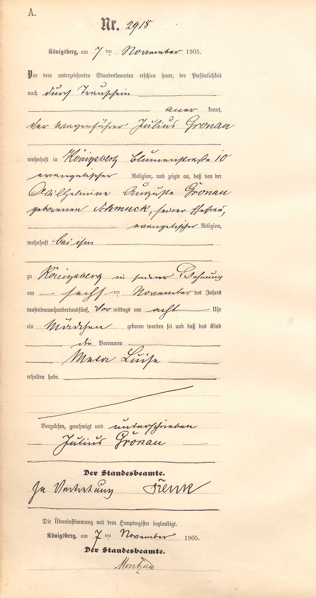 A.
Nr. 2918
Königsberg, am 7ten November 1905.
Vor dem unterzeichneten Standesbeamten erschien heute, der Persönlichkeit
nach durch Trauschein
aner kannt,
der Wagenführer Julius Gronau
wohnhaft in Königsberg Blumenstraße 10
evangelischer Religion, und zeigte an, daß von der
Wilhelmine Auguste Gronau
geborenen Schmuck, seiner Ehefrau,
evangelischer Religion,
wohnhaft bei ihm
zu Königsberg in seiner Wohnung
am sechsten November des Jahres
tausendneunhundertfünf, Vor mittags um acht Uhr
ein Mädchen geboren worden sei und daß das Kind
die Vornamen
Meta Luise
erhalten habe.
Vorgelesen, genehmigt und unterschrieben
Julius Gronau
Der Standesbeamte.
In Vertretung
Die Übereinstimmung mit dem Hauptregister beglaubigt.
Königsberg, am 7ten November 1905.
Der Standesbeamte.